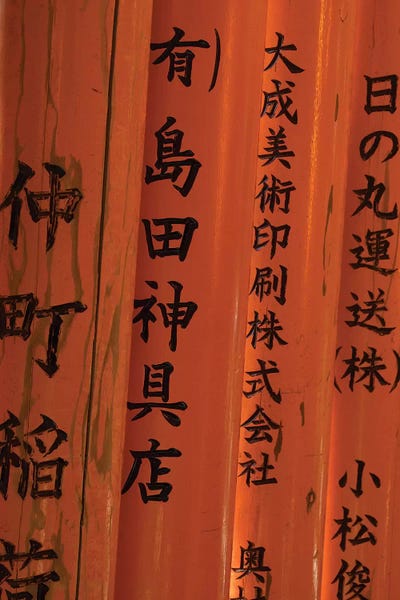 日の丸運送(株) 小松俊
大成美術印刷株式会社 奥村
有)島田神具店
仲町稲荷